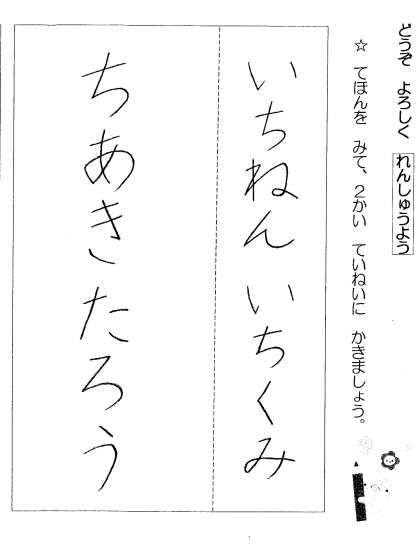 どうぞ よろしく れんしゅうよう
☆ てほんを みて、2かい ていねいに かきましょう。
いちねんいちくみ
ちあきたろう